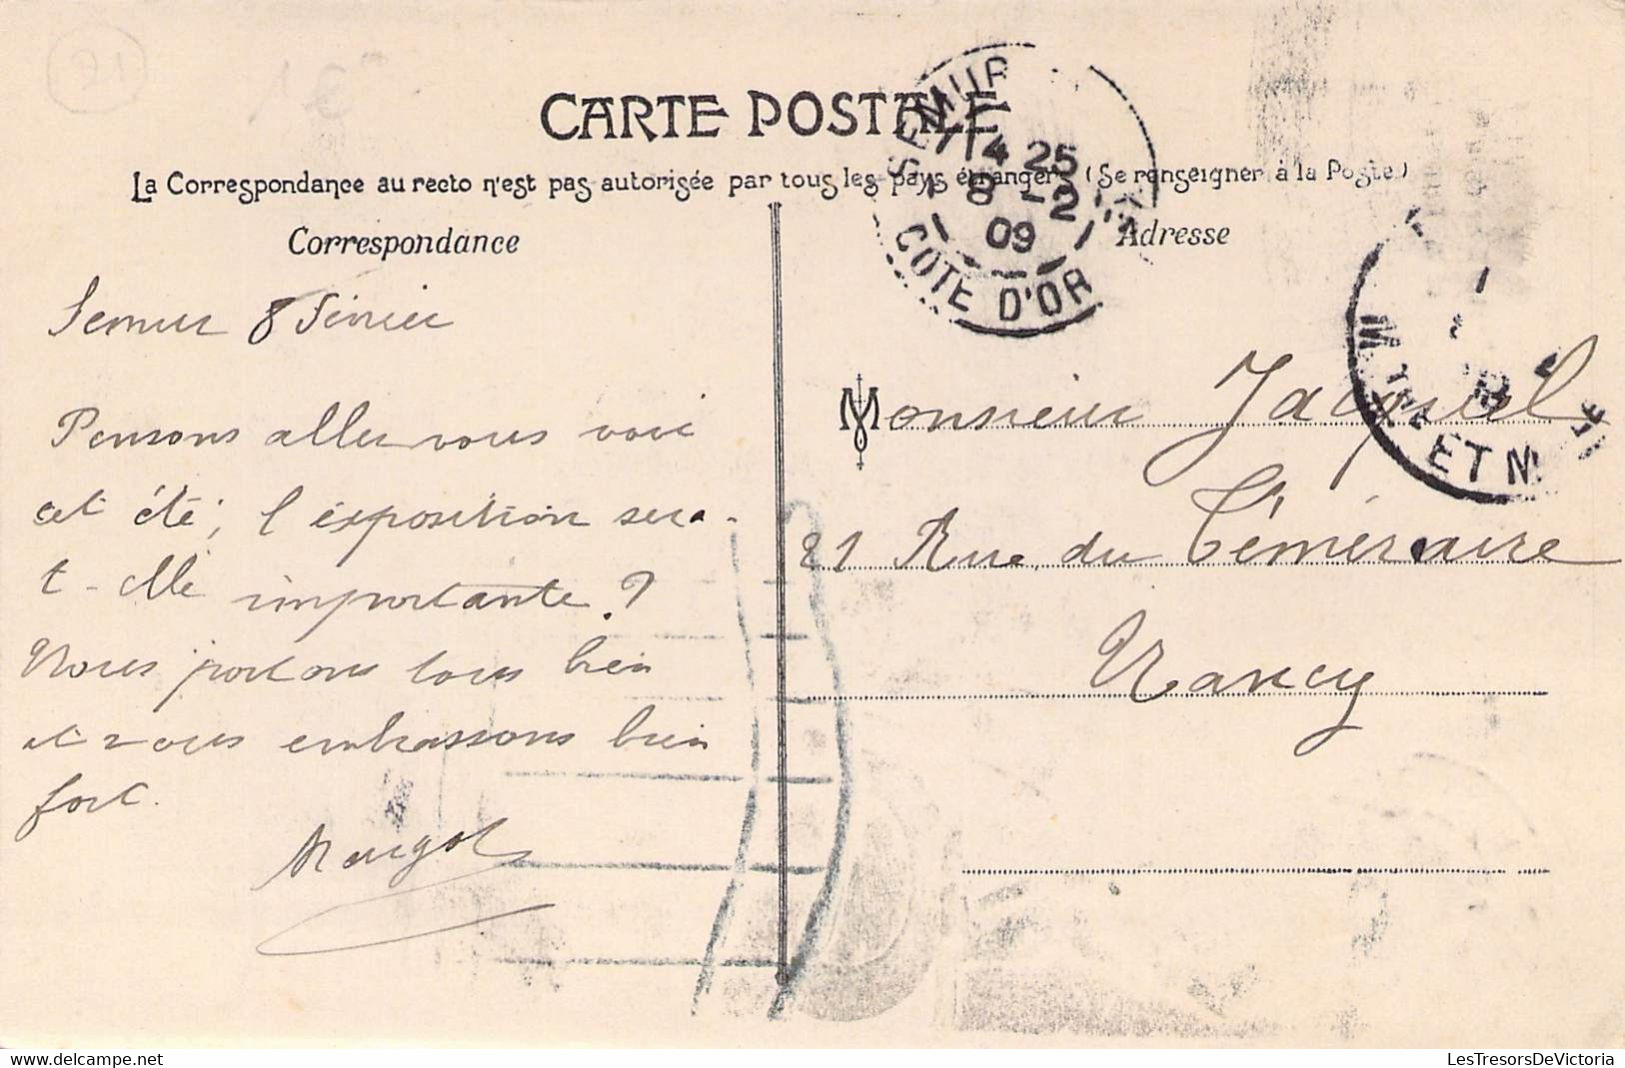 21
CARTE POSTALE
La Correspondance au recto n'est pas autorisée par tous les pays étrangers (Se renseigner à la Poste)
Correspondance
Adresse
SEMUR
14 25
8 -2
09
COTE D'OR
ET M
Semur 8 Février
Pensons aller vous voir
cet été; l'exposition sera-
t-elle importante ?
Nous portons tous bien
et vous embrassons bien
fort.
Margot
Monsieur Jacquel
21 Rue du Téméraire
Nancy
delcampe.net
LesTresorsDeVictoria